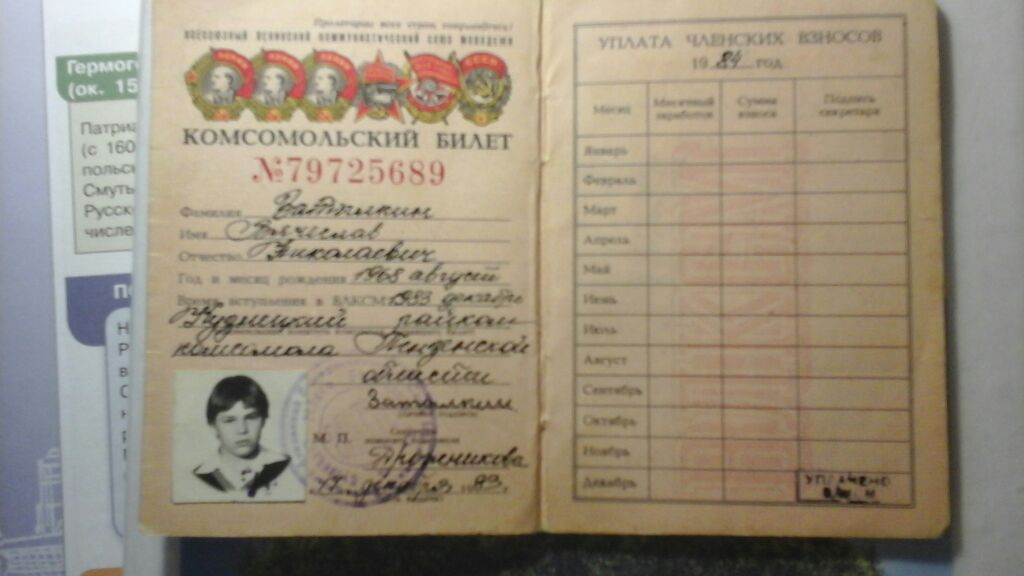 Гермоге
(ок. 15
Патриа
(с 160
польск
Смуты
Русск
числе
Пролетарии всех стран, соединяйтесь!
ВСЕСОЮЗНЫЙ ЛЕНИНСКИЙ КОММУНИСТИЧЕСКИЙ СОЮЗ МОЛОДЕЖИ
КОМСОМОЛЬСКИЙ БИЛЕТ
№79725689
Фамилия Заталкин
Имя Вячеслав
Отчество Николаевич
Год и месяц рождения 1968 август
Время вступления в ВЛКСМ 1983 декабрь
райком
комсомола Пензенской
области
Заталкин
М. П.
17 декабря 1983 г.
УПЛАТА ЧЛЕНСКИХ ВЗНОСОВ
1984 год
Месяц Месячный заработок Сумма взноса Подпись секретаря
Январь
Февраль
Март
Апрель
Май
Июнь
Июль
Август
Сентябрь
Октябрь
Ноябрь
Декабрь УПЛАЧЕНО